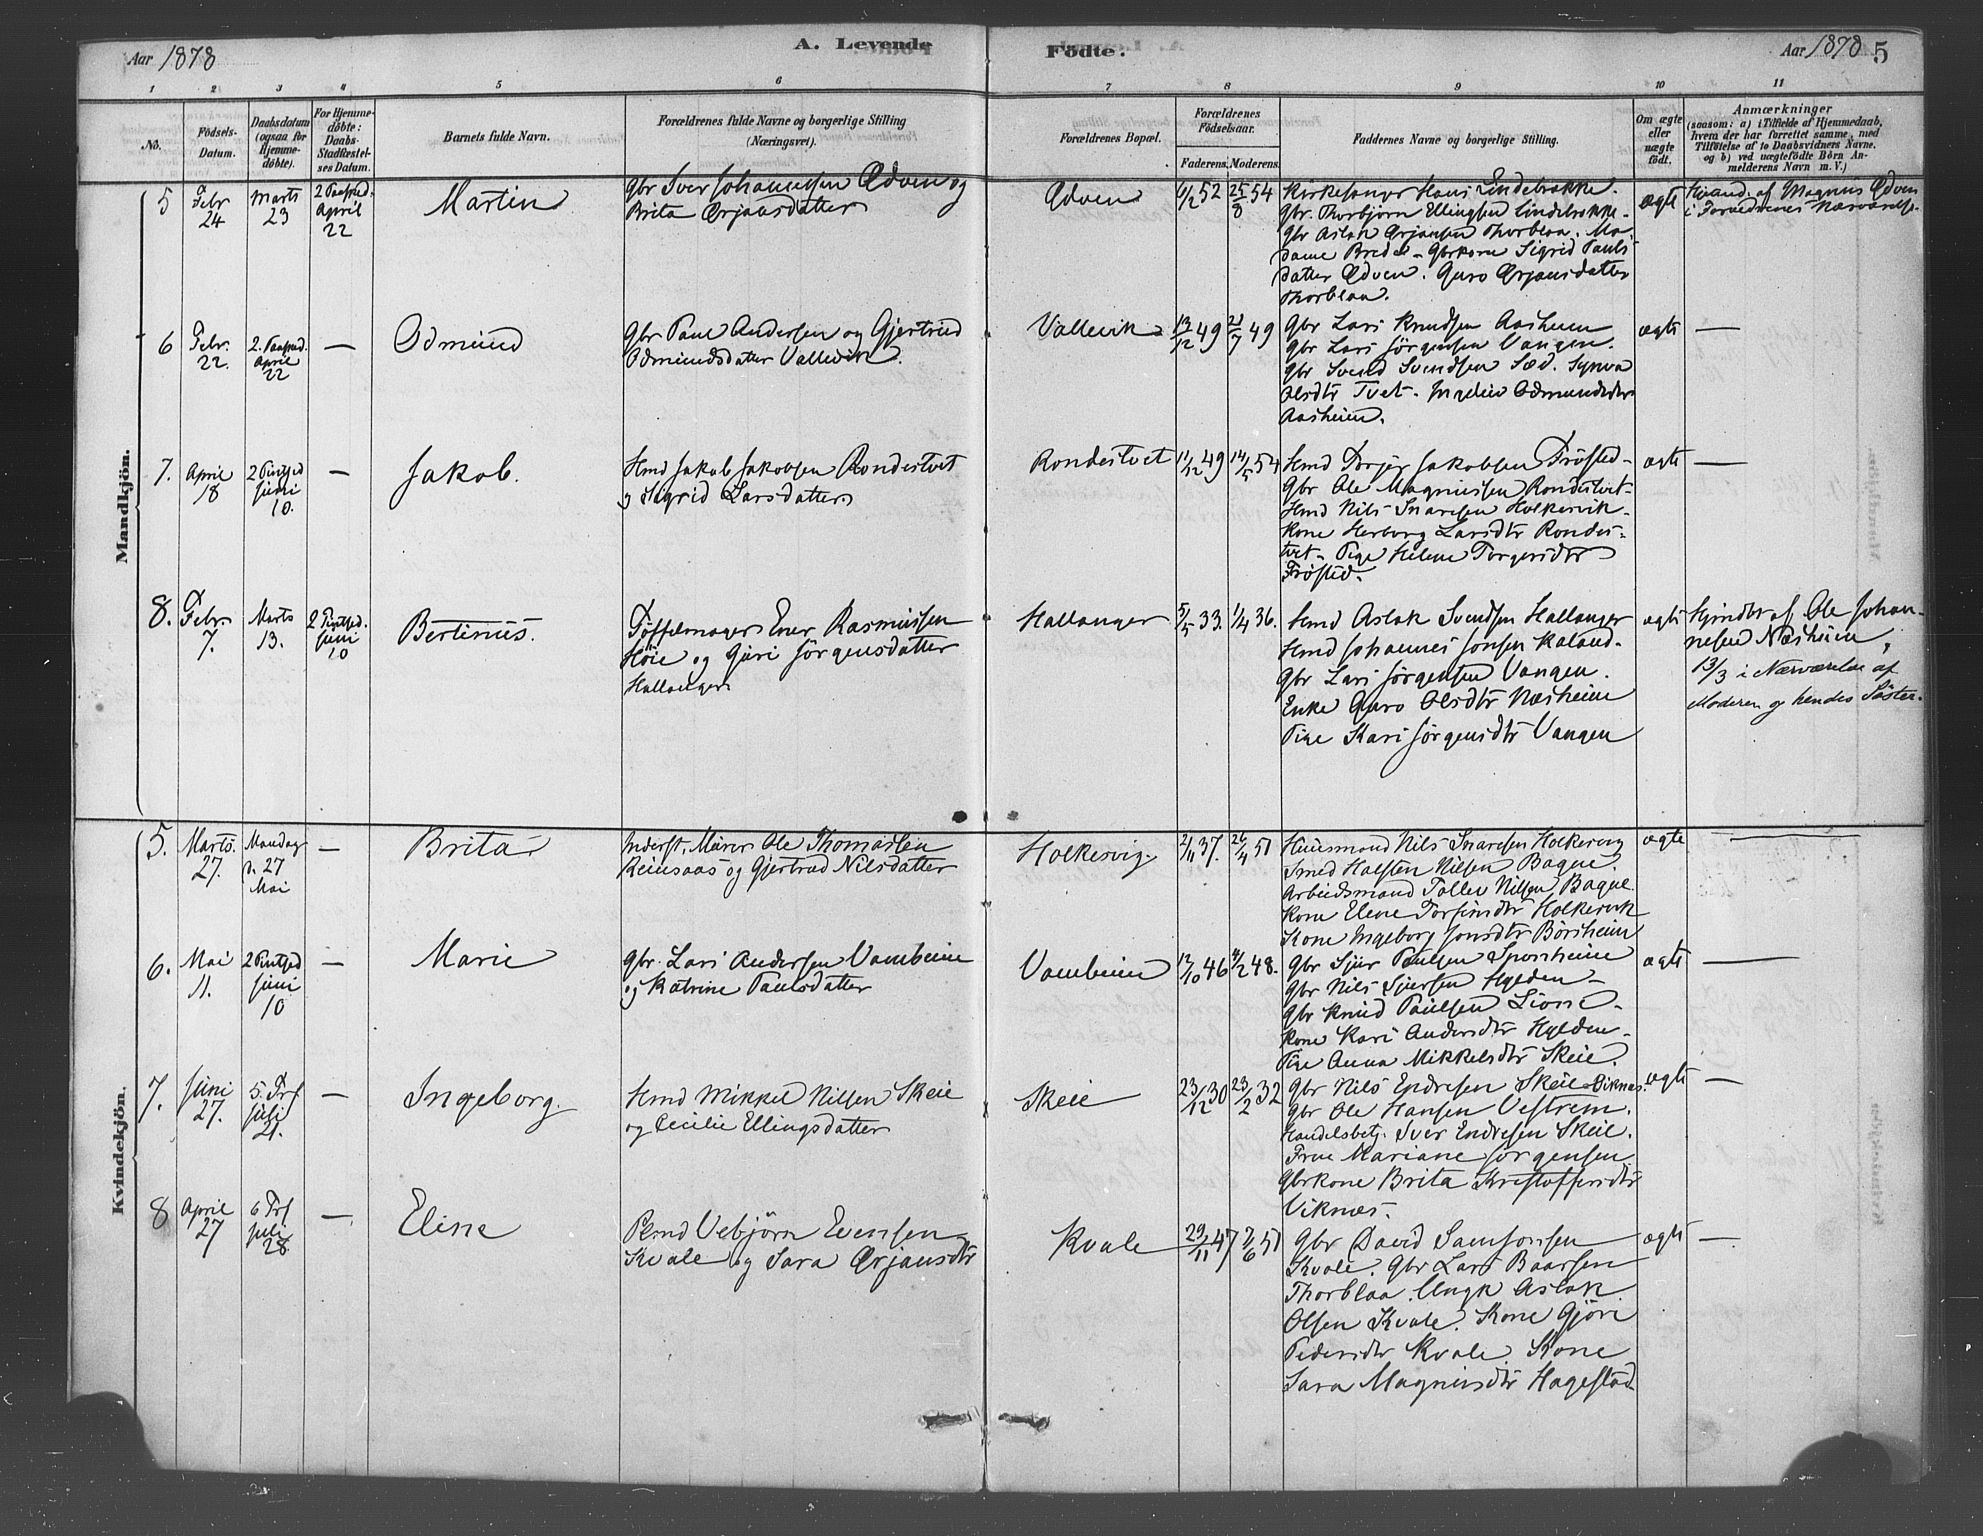 Aar 1878
A. Levende
Fødte.
Aar 1878 5
1 2 3 4 5 6 7 8 9 10 11
No.
Fødsels-
Datum.
Daabsdatum
(ogsaa for
Hjemme-
døbte).
For Hjemme-
døbte:
Daabs-
Stadfæstel-
ses Datum.
Barnets fulde Navn.
Forældrenes fulde Navne og borgerlige Stilling
(Næringsvei).
Forældrenes Bopæl.
Forældrenes
Fødselsaar.
Faderens. Moderens.
Faddernes Navne og borgerlige Stilling.
Om ægte
eller
uægte
født.
Anmærkninger
(saasom: a) i Tilfælde af Hjemmedaab,
hvem der har forrettet samme, med
Tilføielse af to Daabsvidners Navne,
og b) ved uægtefødte Børn An-
melderens Navn m. V.)
Mandkjön.
5
Febr
24
Marts
23
2 Paaskd.
April
22
Martin
Gbr Iver Johannessen Ødven og
Brita Ørjansdatter
Ødven
6/2 52
25/8 54
Kirkesanger Hans Lindebrække.
Gbr. Thorbjørn Ellingsen Lindebrække.
Gbr Aslak Ørjansen Thorblaa. Ma-
dame Breda. Gbrkone Sigrid Pauls
datter Ødven. Guro Ørjansdatter
Thorblaa.
ægte
Hjemd. af Magnus Ødven
i Forældrenes Nærværelse.
6
Febr.
22.
2. Paaskd.
April
22
—
Odmund
Gbr Paul Andersen og Gjertrud
Odmundsdatter Vallevik.
Vallevik
13/12 49
21/7 49
Gbr Lars Knudsen Aasheim
Gbr Lars Jørgensen Vangen.
Gbr Svend Svendsen Sæd. Synva
Olsdtr Tvet. Madlis Odmundsdtr
Aasheim.
ægte
—
7.
April
18
2 Pintsed
Juni
10.
—
Jakob.
Hmd Jakob Jakobsen Rondestvet
og Sigrid Larsdatter
Rondestvet
11/12 49
14/5 54
Hmd Torger Jakobsen Frøsted.
Gbr Ole Magnussen Rondestvet.
Hmd Nils Snaresen Holkesvik.
Kone Herborg Larsdtr Rondes-
tvet. Pige Helene Torgersdtr
Frøsted.
ægte
—
8.
Febr
7.
Marts
13.
2 Pintsed.
Juni
10
Bertinus.
Tøffelmager Ener Rasmussen
Høie og Guri Jørgensdatter
Hallanger
Hallanger
5/5 33.
1/4 36.
Hmd Aslak Svendsen Hallanger
Hmd Johannes Jonsen Kaland.
Gbr Lars Jørgensen Vangen.
Enke Guro Olsdtr Næsheim
Pige Kari Jørgensdtr Vangen
ægte
Hjmdbt af Ole Johan-
nesen Næsheim,
13/3 i Nærværelse af
Moderen og hendes Søster.
Kvindekjön.
5.
Marts
27.
Mandag
d. 27
Mai
—
Brita
Inderst, Murer Ole Thomassen
Reinsaas og Gjertrud Nilsdatter
Holkesvig.
2/11 37.
26/4 51
Huusmand Nils Snaresen Holkesvig
Smed Halsten Nilsen Bague.
Arbeidsmand Tollev Nilsen Bague.
Kone Elene Torfinsdtr Holkesvik
Kone Ingeborg Jonsdtr Börsheim
ægte
—
6.
Mai
11.
2 Pintsed
Juni
10
—
Marie
Gbr. Lars Andersen Vambeim
og Katrine Paulsdatter
Vambeim
17/10 46
4/2 48.
Gbr Sjur Paulsen Sponheim
Gbr Nils Sjursen Hylden
Gbr Knud Paulsen Lione.
Kone Kari Andersdtr Hylden.
Pige Anna Mikkelsdtr Skeie.
ægte
—
7.
Juni
27.
5. Trf
Juli
21.
—
Ingeborg.
Hmd Mikkel Nilsen Skeie
og Cecilie Ellingsdatter
Skeie
23/12 30
23/2 32
Gbr Nils Endresen Skeie Viknæs.
Gbr Ole Hansen Vestrem.
Handelsbetj. Iver Endresen Skeie.
Frue Mariane Jørgensen
Gbrkone Brita Kristoffersdtr
Viknæs.
ægte
—
8
April
27
6 Trf
Juli
28
—
Eline
Plmd Vebjørn Evensen
Kvale og Sara Ørjansdtr
Kvale
29/11 47
7/6 51
Gbr David Samsonsen
Kvale. Gbr Lars Baarsen
Thorblaa. Ungk Aslak
Olsen Kvale. Kone Gjøri
Pedersdtr Kvale Kone
Sara Magnusdtr Hagestad
ægte
—